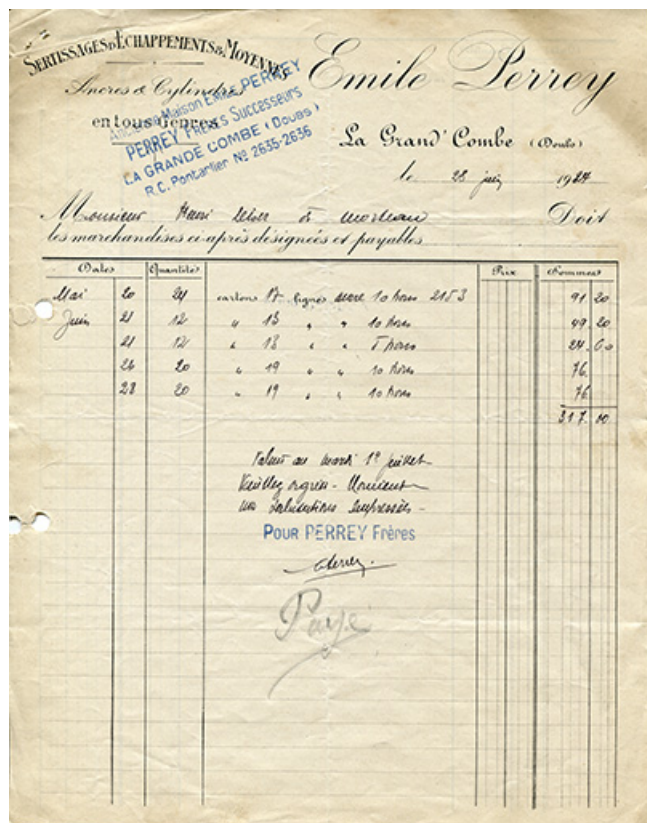 SERTISSAGES D'ÉCHAPPEMENTS & MOYENNES
Ancres & Cylindres
en tous Genres
Ancienne Maison Emile PERREY
PERREY FRÈRES Successeurs
LA GRANDE COMBE (Doubs)
R.C. Pontarlier Nº 2635-2636
Emile Perrey
La Grand' Combe (Doubs)
le 28 juin 1924
Monsieur Henri à Morteau Doit
les marchandises ci-après désignées et payables
Dates Quantité Prix Sommes
Mai 20 24 cartons 17 lignes 10 2153 91 20
Juin 21 12 " 13 " " 10 49 20
21 12 " 13 " " 24 60
26 20 " 19 " " 10 76
28 20 " 19 " " 10 76
317 00
Valeur au mardi 1er juillet
Veuillez agréer Monsieur
nos salutations empressées
POUR PERREY Frères
Payé